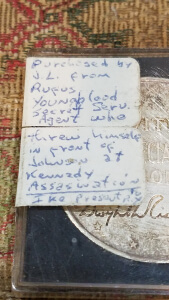 Purchased by
J.L. from
Rufus
Youngblood
Secret Serv.
Agent who
threw himself
in front of
Johnson at
Kennedy
Assasination
Ike